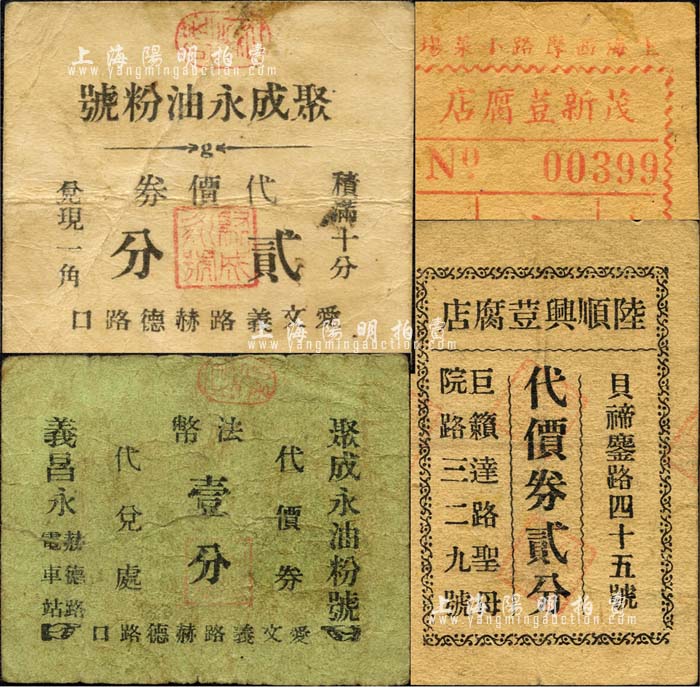 上海陽明拍賣
www.yangmingauction.com
聚成永油粉號
代價券
積滿十分
貳分
兌現一角
愛文義路赫德路口
上海西摩路小菜場
茂新荳腐店
Nº 00399
聚成永油粉號
代價券
法幣
壹分
代兌處
義昌永
赫德路
電車站
愛文義路赫德路口
陸順興荳腐店
貝禘鏖路四十五號
代價券貳分
巨籟達路聖母
院路三二九號
上海陽明拍賣
www.yangmingauction.com
上海陽明拍賣
www.yangmingauction.com